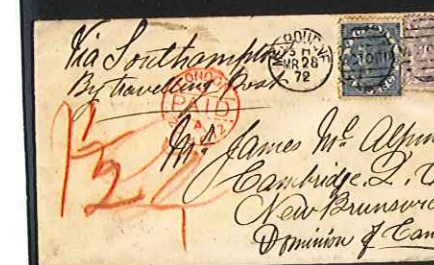 Via Southampton
By travelling Post
MELBOURNE
MR 28
72
LONDON
PAID
Mr. James Mc Alpin
Cambridge, Q.
New Brunswi
Dominion of Can
1/2
2